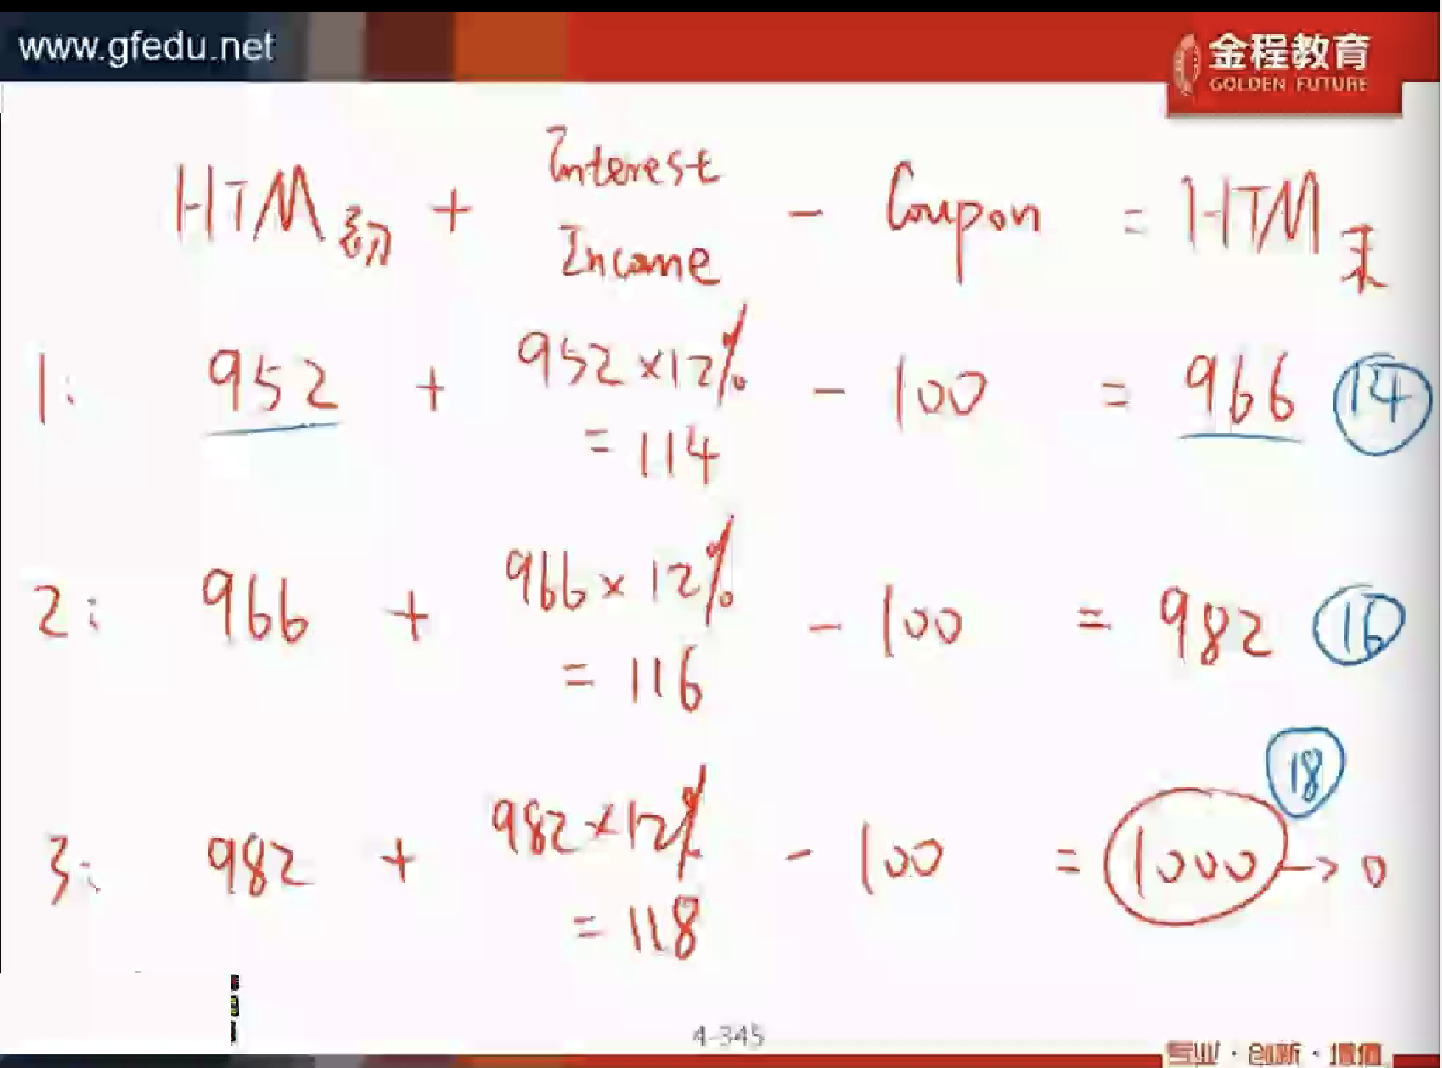 www.gfedu.net
金程教育
GOLDEN FUTURE
HTM初 + Interest Income - Coupon = HTM末
1: 952 + 952×12% - 100 = 966 14
= 114
2: 966 + 966×12% - 100 = 982 16
= 116
18
3: 982 + 982×12% - 100 = 1000 → 0
= 118
4-345
专业·创新·增值